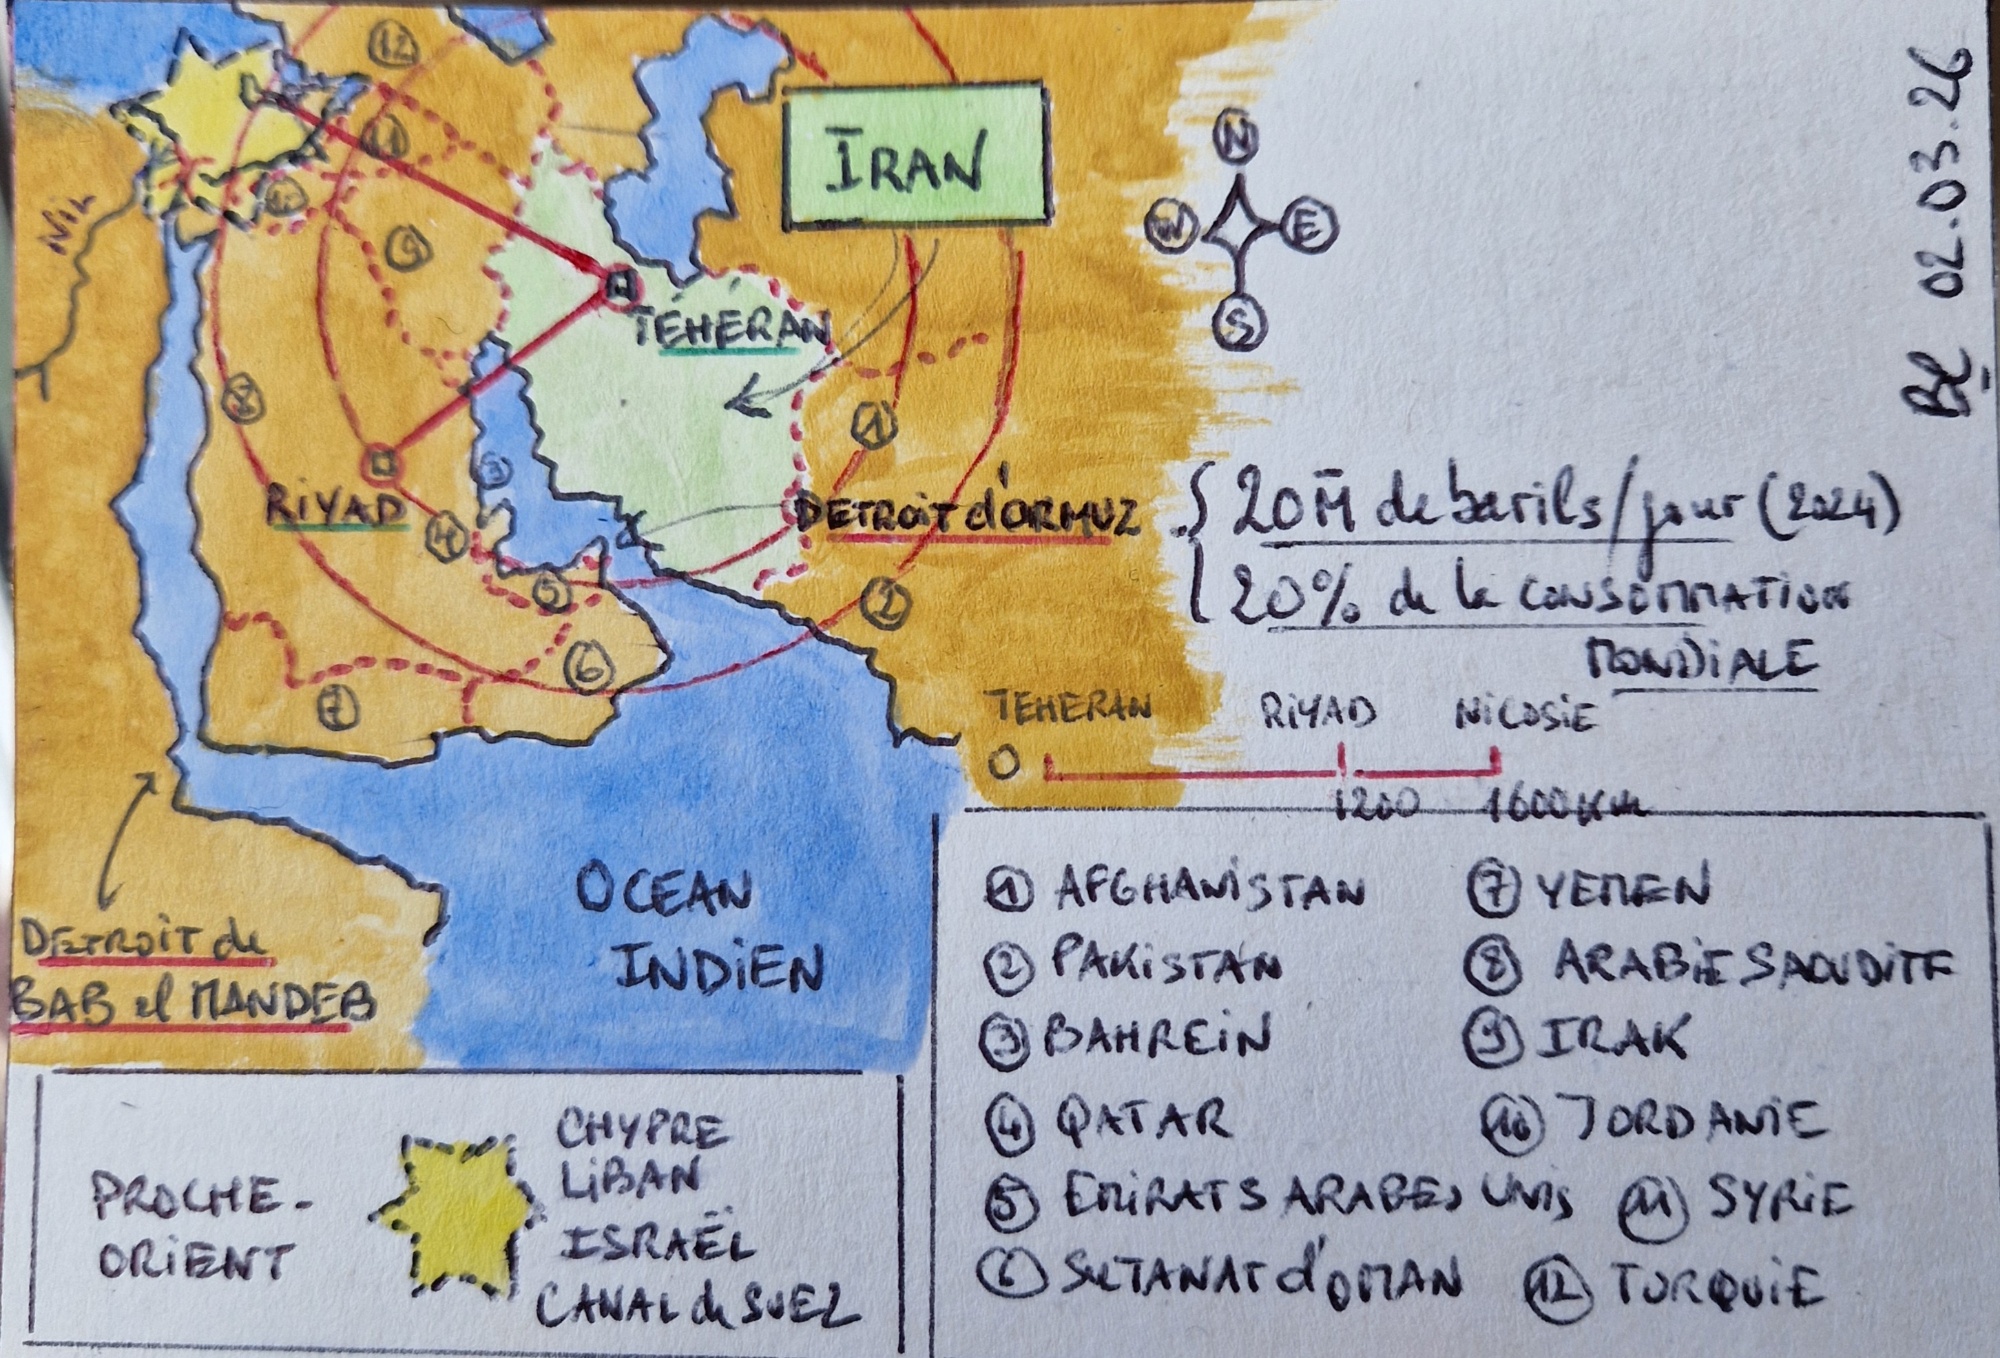 12
11
10
9
8
7
6
5
4
3
2
1
NIL
IRAN
TEHERAN
RIYAD
N
W E
S
BL 02.03.26
DETROIT d'ORMUZ
20M̄ de barils/jour (2024)
20% de la CONSOMMATION
MONDIALE
TEHERAN RIYAD NICOSIE
0 1200 1600 Km
OCEAN
INDIEN
DETROIT de
BAB el MANDEB
PROCHE-
ORIENT
CHYPRE
LIBAN
ISRAËL
CANAL de SUEZ
1 AFGHANISTAN
2 PAKISTAN
3 BAHREIN
4 QATAR
5 EMIRATS ARABES UNIS
6 SULTANAT d'OMAN
7 YEMEN
8 ARABIE SAOUDITE
9 IRAK
10 JORDANIE
11 SYRIE
12 TURQUIE